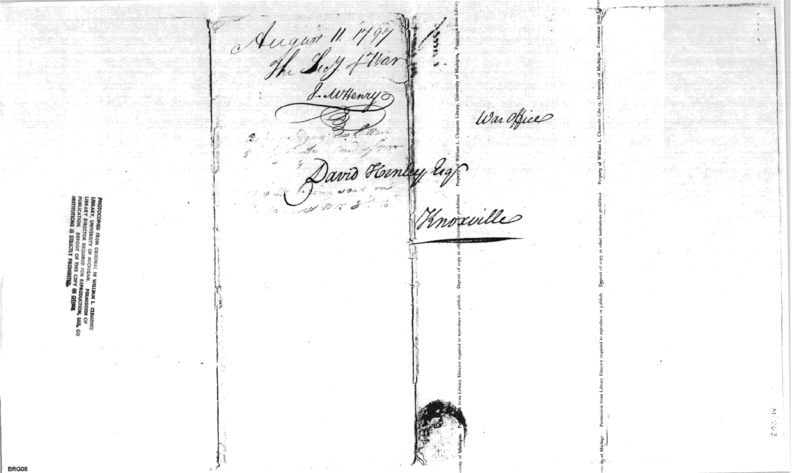 August 11 1797
The Secy of War
J. McHenry
War Office
David Henley Esqr
Knoxville
PHOTOCOPIED FROM ORIGINAL IN WILLIAM L. CLEMENTS
LIBRARY, UNIVERSITY OF MICHIGAN. PERMISSION OF
LIBRARY DIRECTOR REQUIRED FOR REPRODUCTION, USE, OR
PUBLICATION. DEPOSIT OF THIS COPY IN OTHER
INSTITUTIONS IS STRICTLY PROHIBITED.
Property of William L. Clements Library, University of Michigan. Permission from Library Director required to reproduce or publish. Deposit of copy in other institutions prohibited.
Property of William L. Clements Library, University of Michigan. Permission from Library Director required to reproduce or publish. Deposit of copy in other institutions prohibited.
BRG08